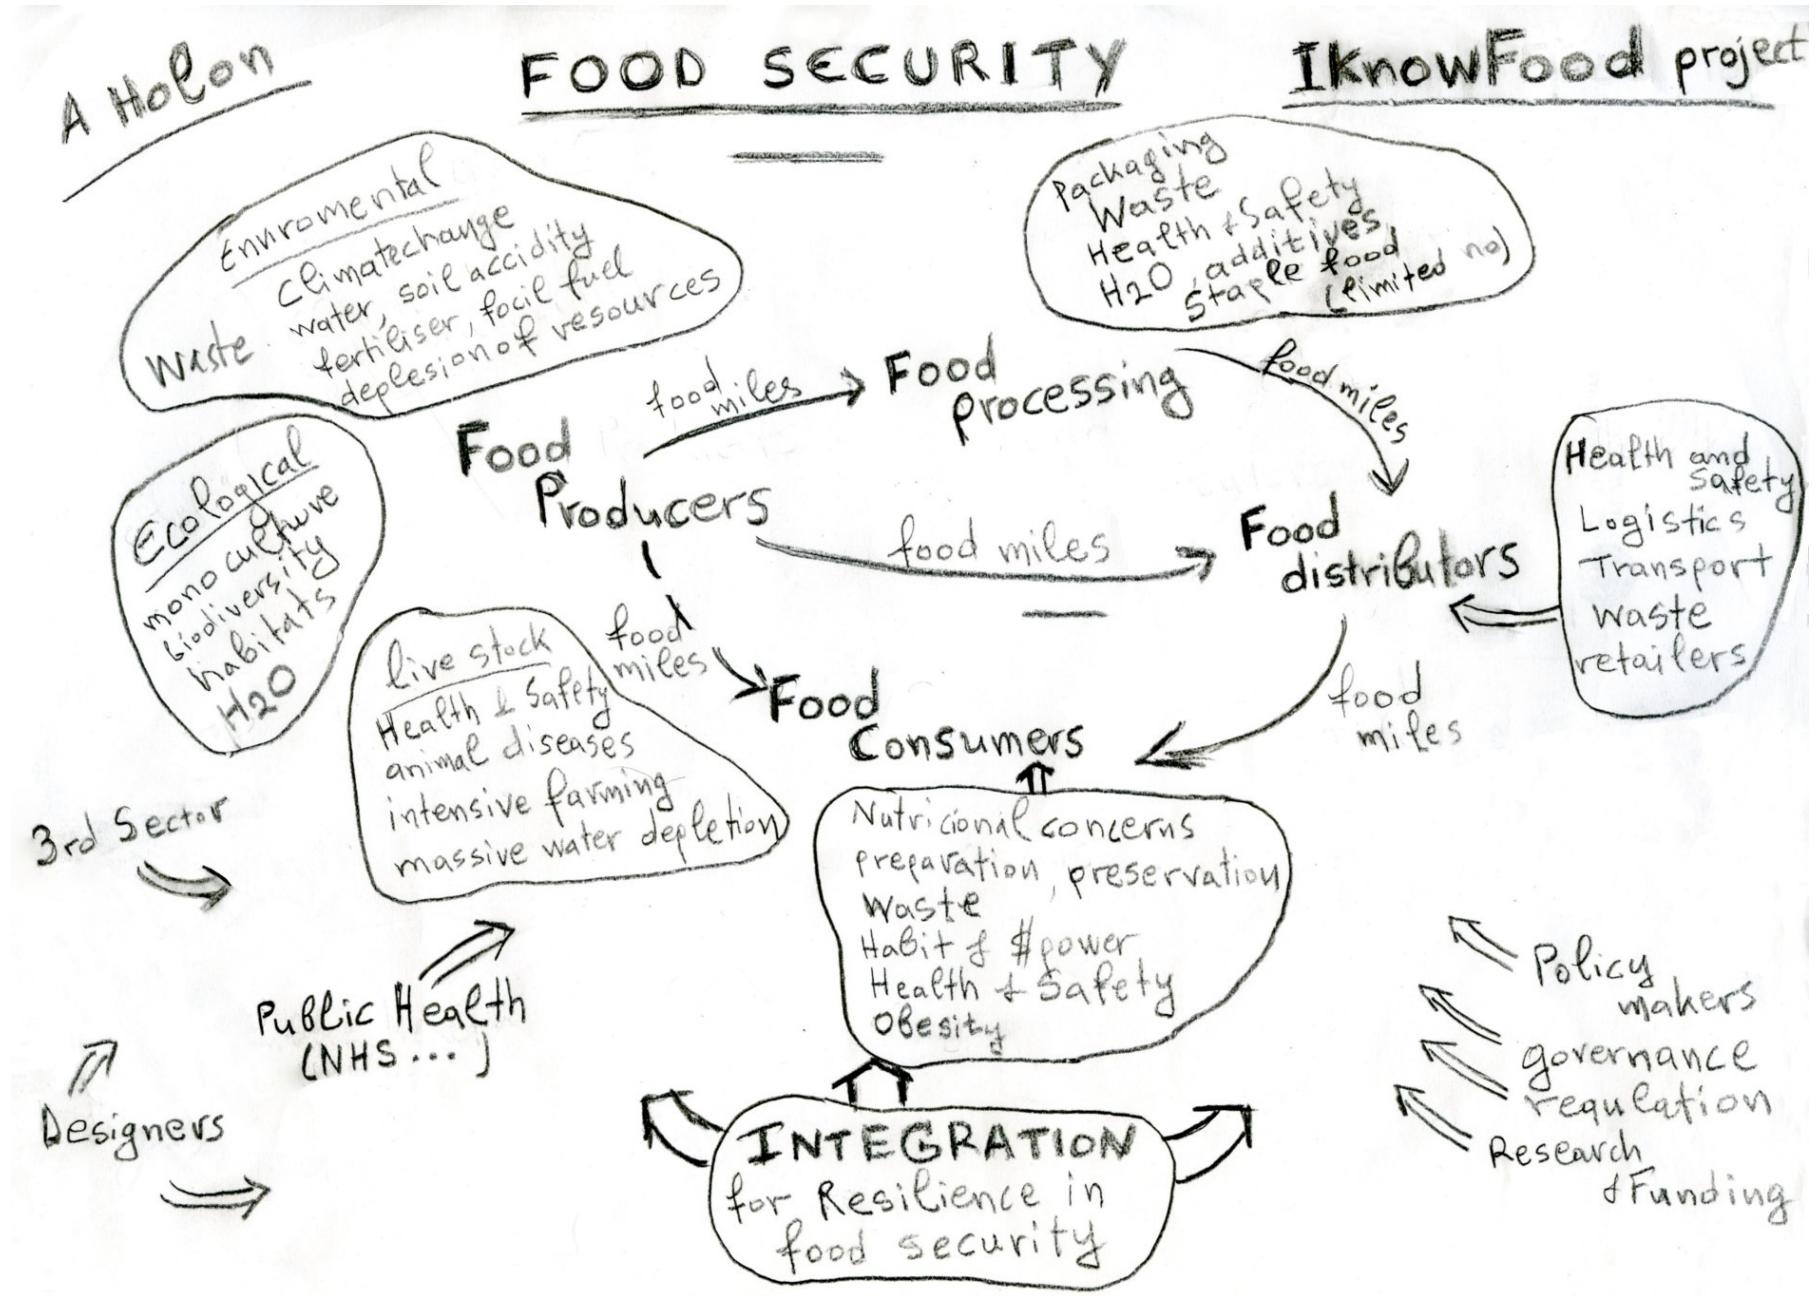 A Holon
FOOD SECURITY
IKnowFood project
Enviromental
climatechange
water, soil accidity
fertiliser, focil fuel
deplesion of resources
Waste
Packaging
Waste
Health & Safety
H2O, additives,
Staple food
(limited no)
food miles
Food
processing
food miles
Food
Producers
Ecological
mono culture
biodiversity
habitats
H2O
food miles
Food
distributors
Health and
Safety
Logistics
Transport
Waste
retailers
live stock
Health & Safety
animal diseases
intensive farming
massive water depletion
food
miles
Food
Consumers
food
miles
Nutricional concerns
preparation, preservation
Waste
Habit & $power
Health & Safety
Obesity
3rd Sector
Public Health
(NHS...)
Designers
Policy
makers
governance
regulation
Research
& Funding
INTEGRATION
for Resilience in
food security